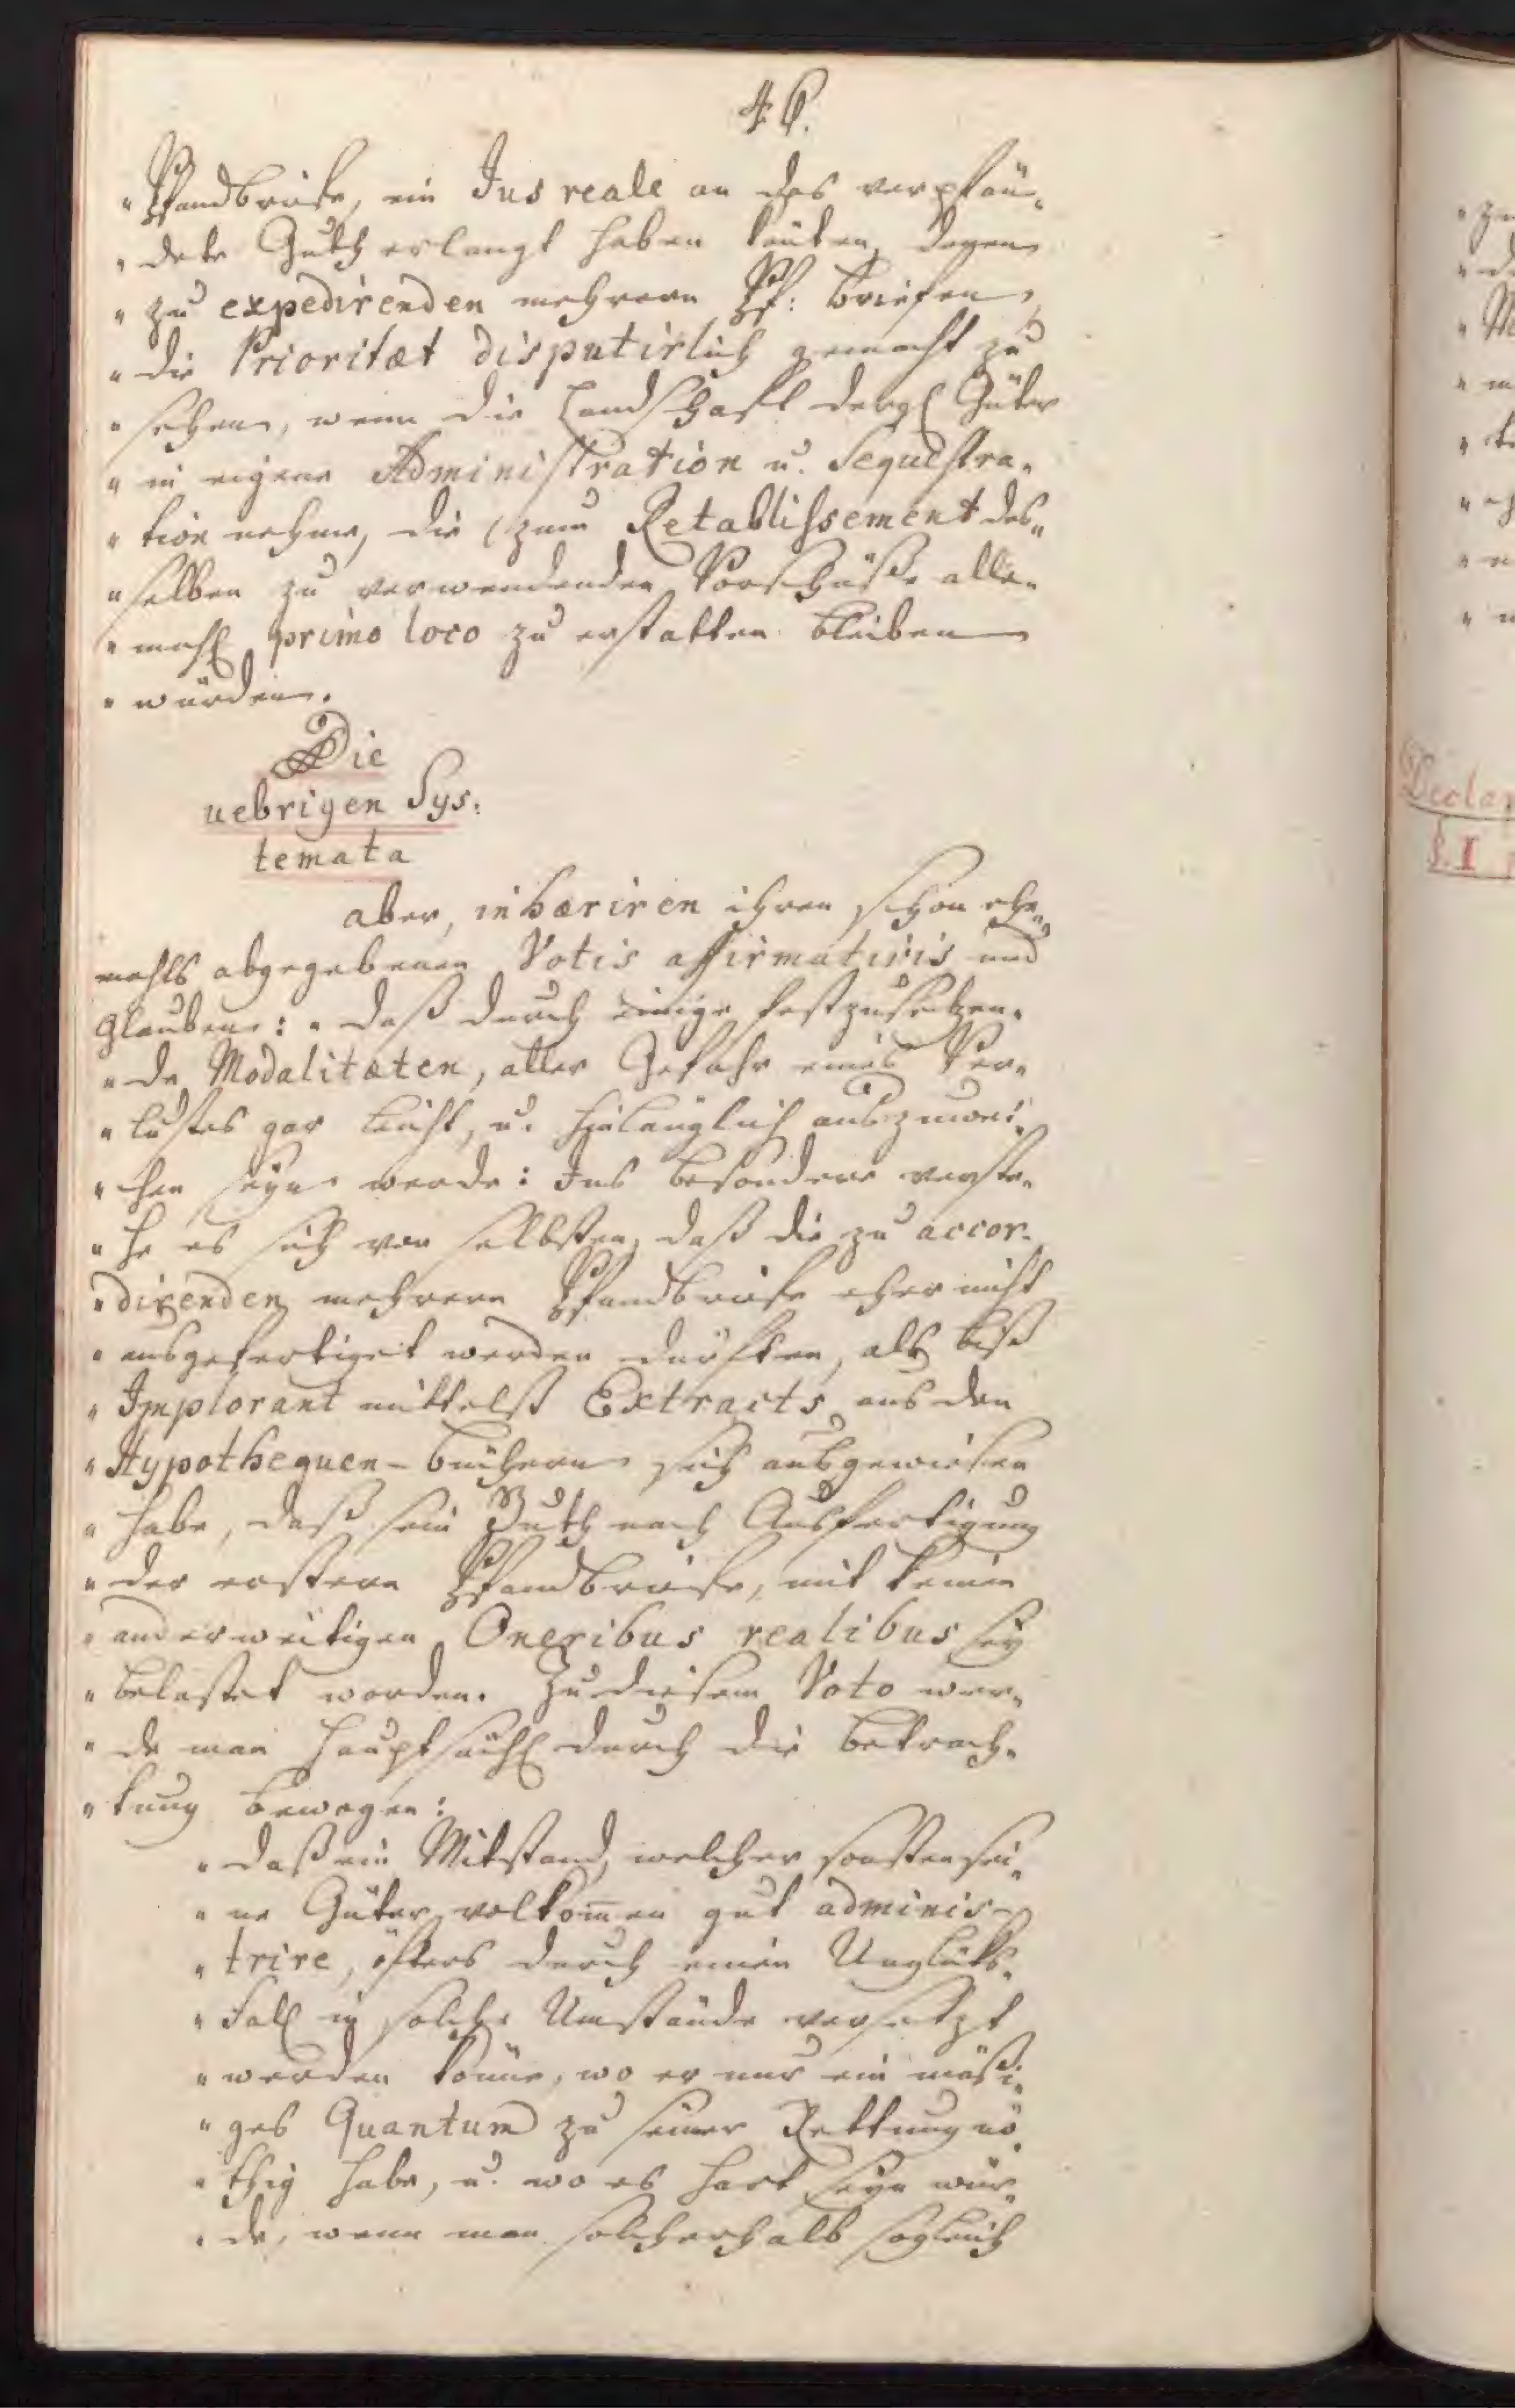 46.
" Pfandbriefe, ein Jus reale an das verpfän„
" dete Guth erlangt haben leuten, denen
" zu expedirenden mehrern Pf: briefen,
" die Prioritæt disputirlich gemacht zu
" sehen, wenn die Landschaft dergl Güter
" in eigene Administration u. Sequestra„
" tion nehme, die zum Retablissement des„
" selben zu verwendenden Vorschüße alle„
" mahl primo loco zu erstatten bleiben
" würden.
Die
uebrigen Sys:
temata
aber, inhæriren ihren schon ehe„
mahls abgegebenen Votis affirmativis und
glauben: " daß durch einige festzusetzen„
" de Modalitæten, aller Gefahr eines Ver„
" lustes gar leicht, u. hinlänglich auszuwei„
" chen seyn werde: Ins besondere verste„
" he es sich von selbsten, daß die zu accor„
" direnden mehrern Pfandbriefe eher nicht
" ausgefertiget werden dürften, als biß
" Implorant mittelst Extracts aus den
" Hypothequen-büchern sich ausgewiesen
" habe, daß sein Guth nach Ausfertigung
" der erstern Pfandbriefe, mit keinen
" anderweitigen Oneribus realibus sey
" belastet worden. Zu diesem Voto wer„
" de man hauptsächl durch die betrach„
" tung bewogen:
" daß ein Mitstand, welcher sonsten sei„
" ne Güter vollkom̄en gut adminis-
" trire, öfters durch einen Unglüks„
" Fall in solche Umstände versetzt
" werden könne, wo er nur ein mäßi„
" ges Quantum zu seiner Rettung nö„
" thig habe, u. wo es hart seyn wür„
" de, wenn man solcherhalb sogleich
Declar
§. I